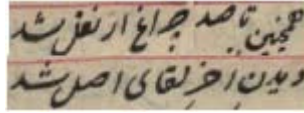 همچنین تا صد چراغ ار نقل شد
دیدن آخر لقای اصل شد